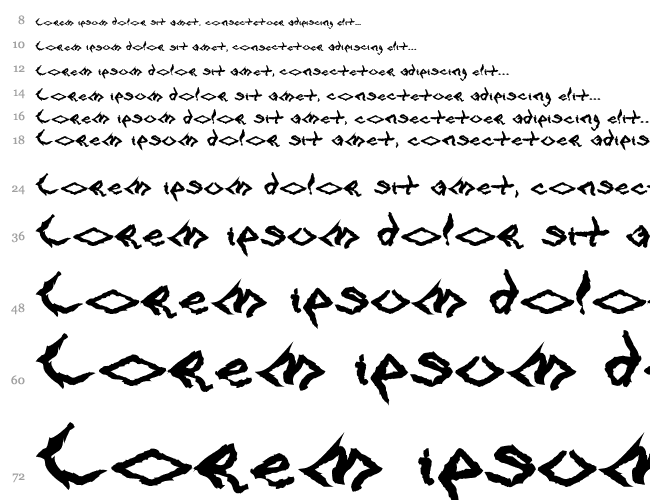 8 Lorem ipsum dolor sit amet, consectetuer adipiscing elit...
10 Lorem ipsum dolor sit amet, consectetuer adipiscing elit...
12 Lorem ipsum dolor sit amet, consectetuer adipiscing elit...
14 Lorem ipsum dolor sit amet, consectetuer adipiscing elit...
16 Lorem ipsum dolor sit amet, consectetuer adipiscing elit...
18 Lorem ipsum dolor sit amet, consectetuer adipis
24 Lorem ipsum dolor sit amet, consec
36 Lorem ipsum dolor sit a
48 Lorem ipsum dolo
60 Lorem ipsum d
72 Lorem ipsum